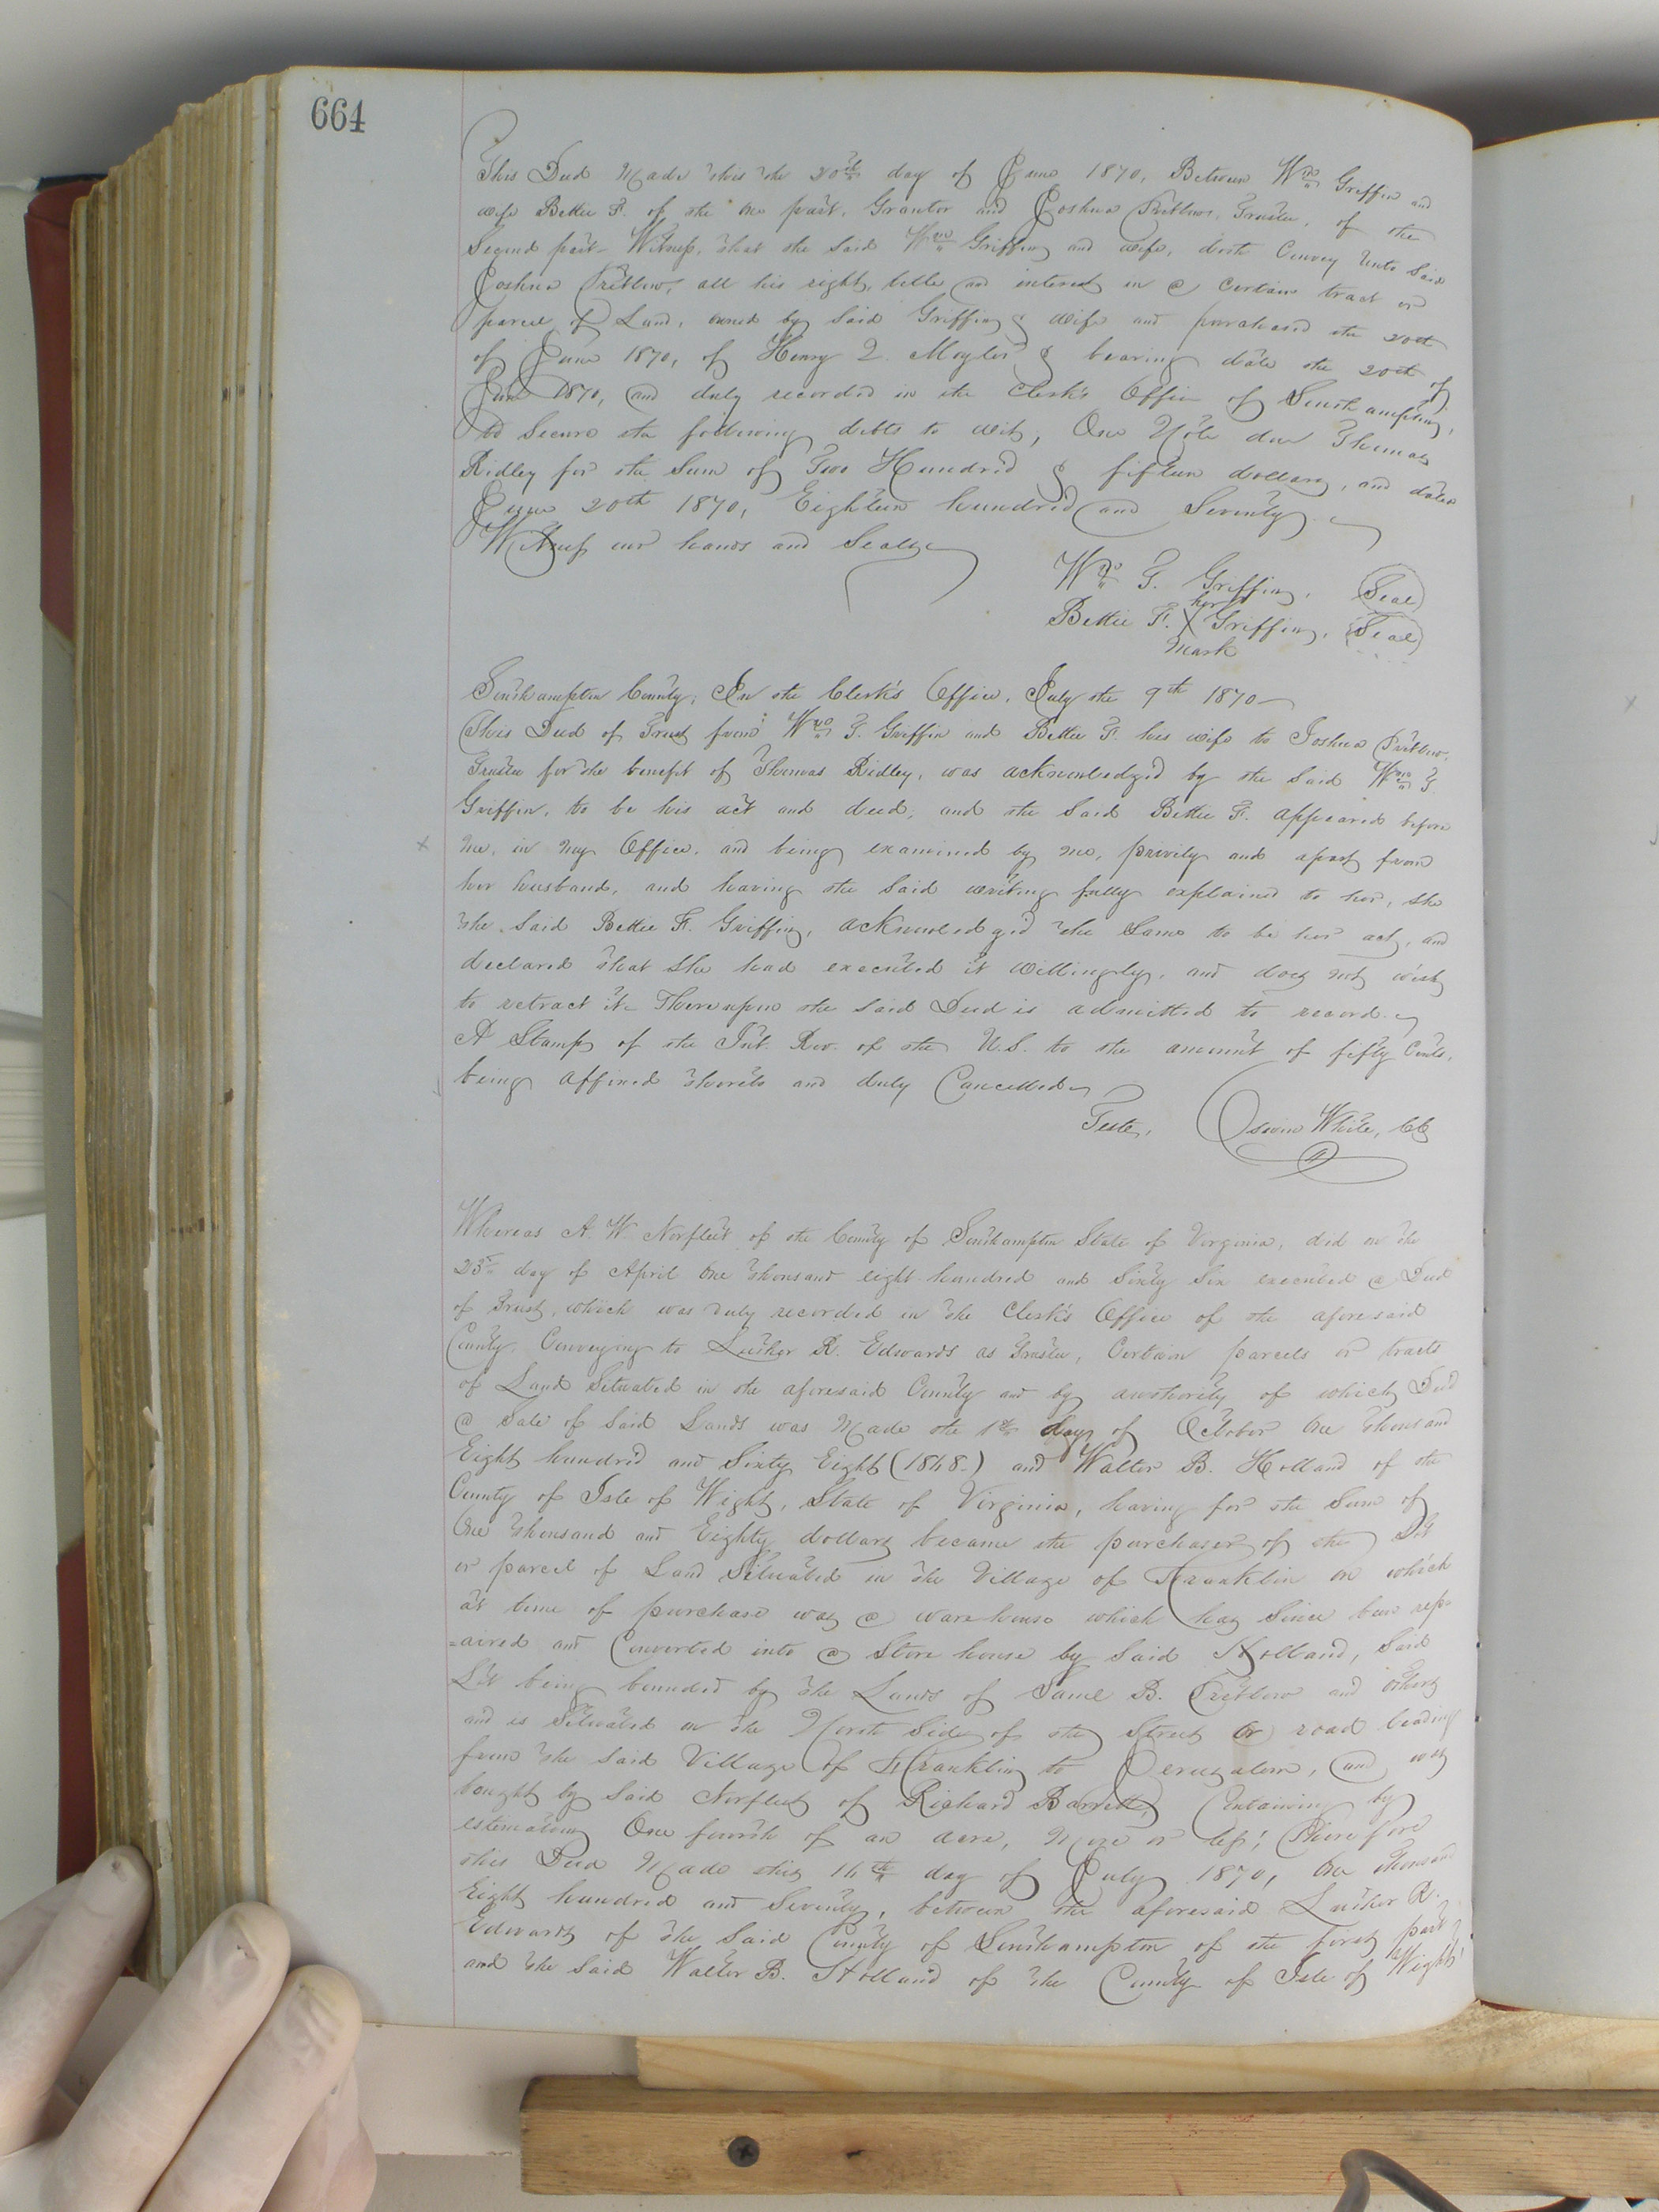 664
This Deed Made this the 20th day of June 1870, Between Wm Griffin and
wife Bettie F. of the one part, Grantor and Joshua Pretlow, Trustee, of the
Second part - Witness, that the said Wm Griffin and wife, doth Convey Unto Said
Joshua Pretlow, all his right, title and interest in a Certain tract or
parcel of Land, owned by Said Griffin & wife and purchased the 20th
of June 1870, of Henry Q. Moyler & bearing date the 20th of
June 1870, and duly recorded in the Clerk's Office of Southampton,
to Secure the following debts to wit, One Note due Thomas
Ridley for the Sum of Two Hundred & fifteen dollars, and dated
June 20th 1870, Eighteen hundred and Seventy
Witness our hands and Seals
Wm T. Griffin, (Seal)
her
Bettie F. X Griffin, (Seal)
mark
Southampton County, In the Clerk's Office, July the 9th 1870
This Deed of Trust from Wm T. Griffin and Bettie F. his wife to Joshua Pretlow,
Trustee for the benefit of Thomas Ridley, was acknowledged by the Said Wm T.
Griffin, to be his act and deed, and the Said Bettie F. appeared before
me, in my Office, and being examined by me, privily and apart from
her husband, and having the Said writing fully explained to her, She
the Said Bettie F. Griffin, acknowledged the Same to be her act, and
declared that She had executed it willingly, and does not wish
to retract it. Thereupon the said Deed is admitted to record.
A Stamp of the Int. Rev. of the U.S. to the amount of fifty Cents,
being affixed thereto and duly Cancelled
Teste, White, CC
Whereas A. W. Norfleet of the County of Southampton State of Virginia, did on the
23rd day of April One thousand eight hundred and Sixty Six executed a Deed
of Trust, which was duly recorded in the Clerk's Office of the aforesaid
County. Conveying to Luther R. Edwards as Trustee, Certain parcels or tracts
of Land Situated in the aforesaid County and by authority of which Deed
a Sale of Said Lands was Made the 1st day of October One thousand
Eight hundred and Sixty Eight (1848.) and Walter B. Holland of the
County of Isle of Wight, State of Virginia, having for the Sum of
One thousand and Eighty dollars became the purchaser of the Lot
or parcel of Land Situated in the Village of Franklin on which
at time of purchase was a warehouse which has Since been rep=
=aired and Converted into a Store house by Said Holland, Said
Lot being bounded by the Lands of Saml B. Pretlow and others
and is Situated on the North Side of the Street or road leading
from the Said Village of Franklin to Jerusalem, and was
bought by Said Norfleet of Richard Barrett, Containing by
estimation One fourth of an acre, More or less; Therefore
this Deed Made this 14th day of July 1870, One thousand
Eight hundred and Seventy, between the aforesaid Luther R.
Edwards of the Said County of Southampton of the first part
and the Said Walter B. Holland of the County of Isle of Wight